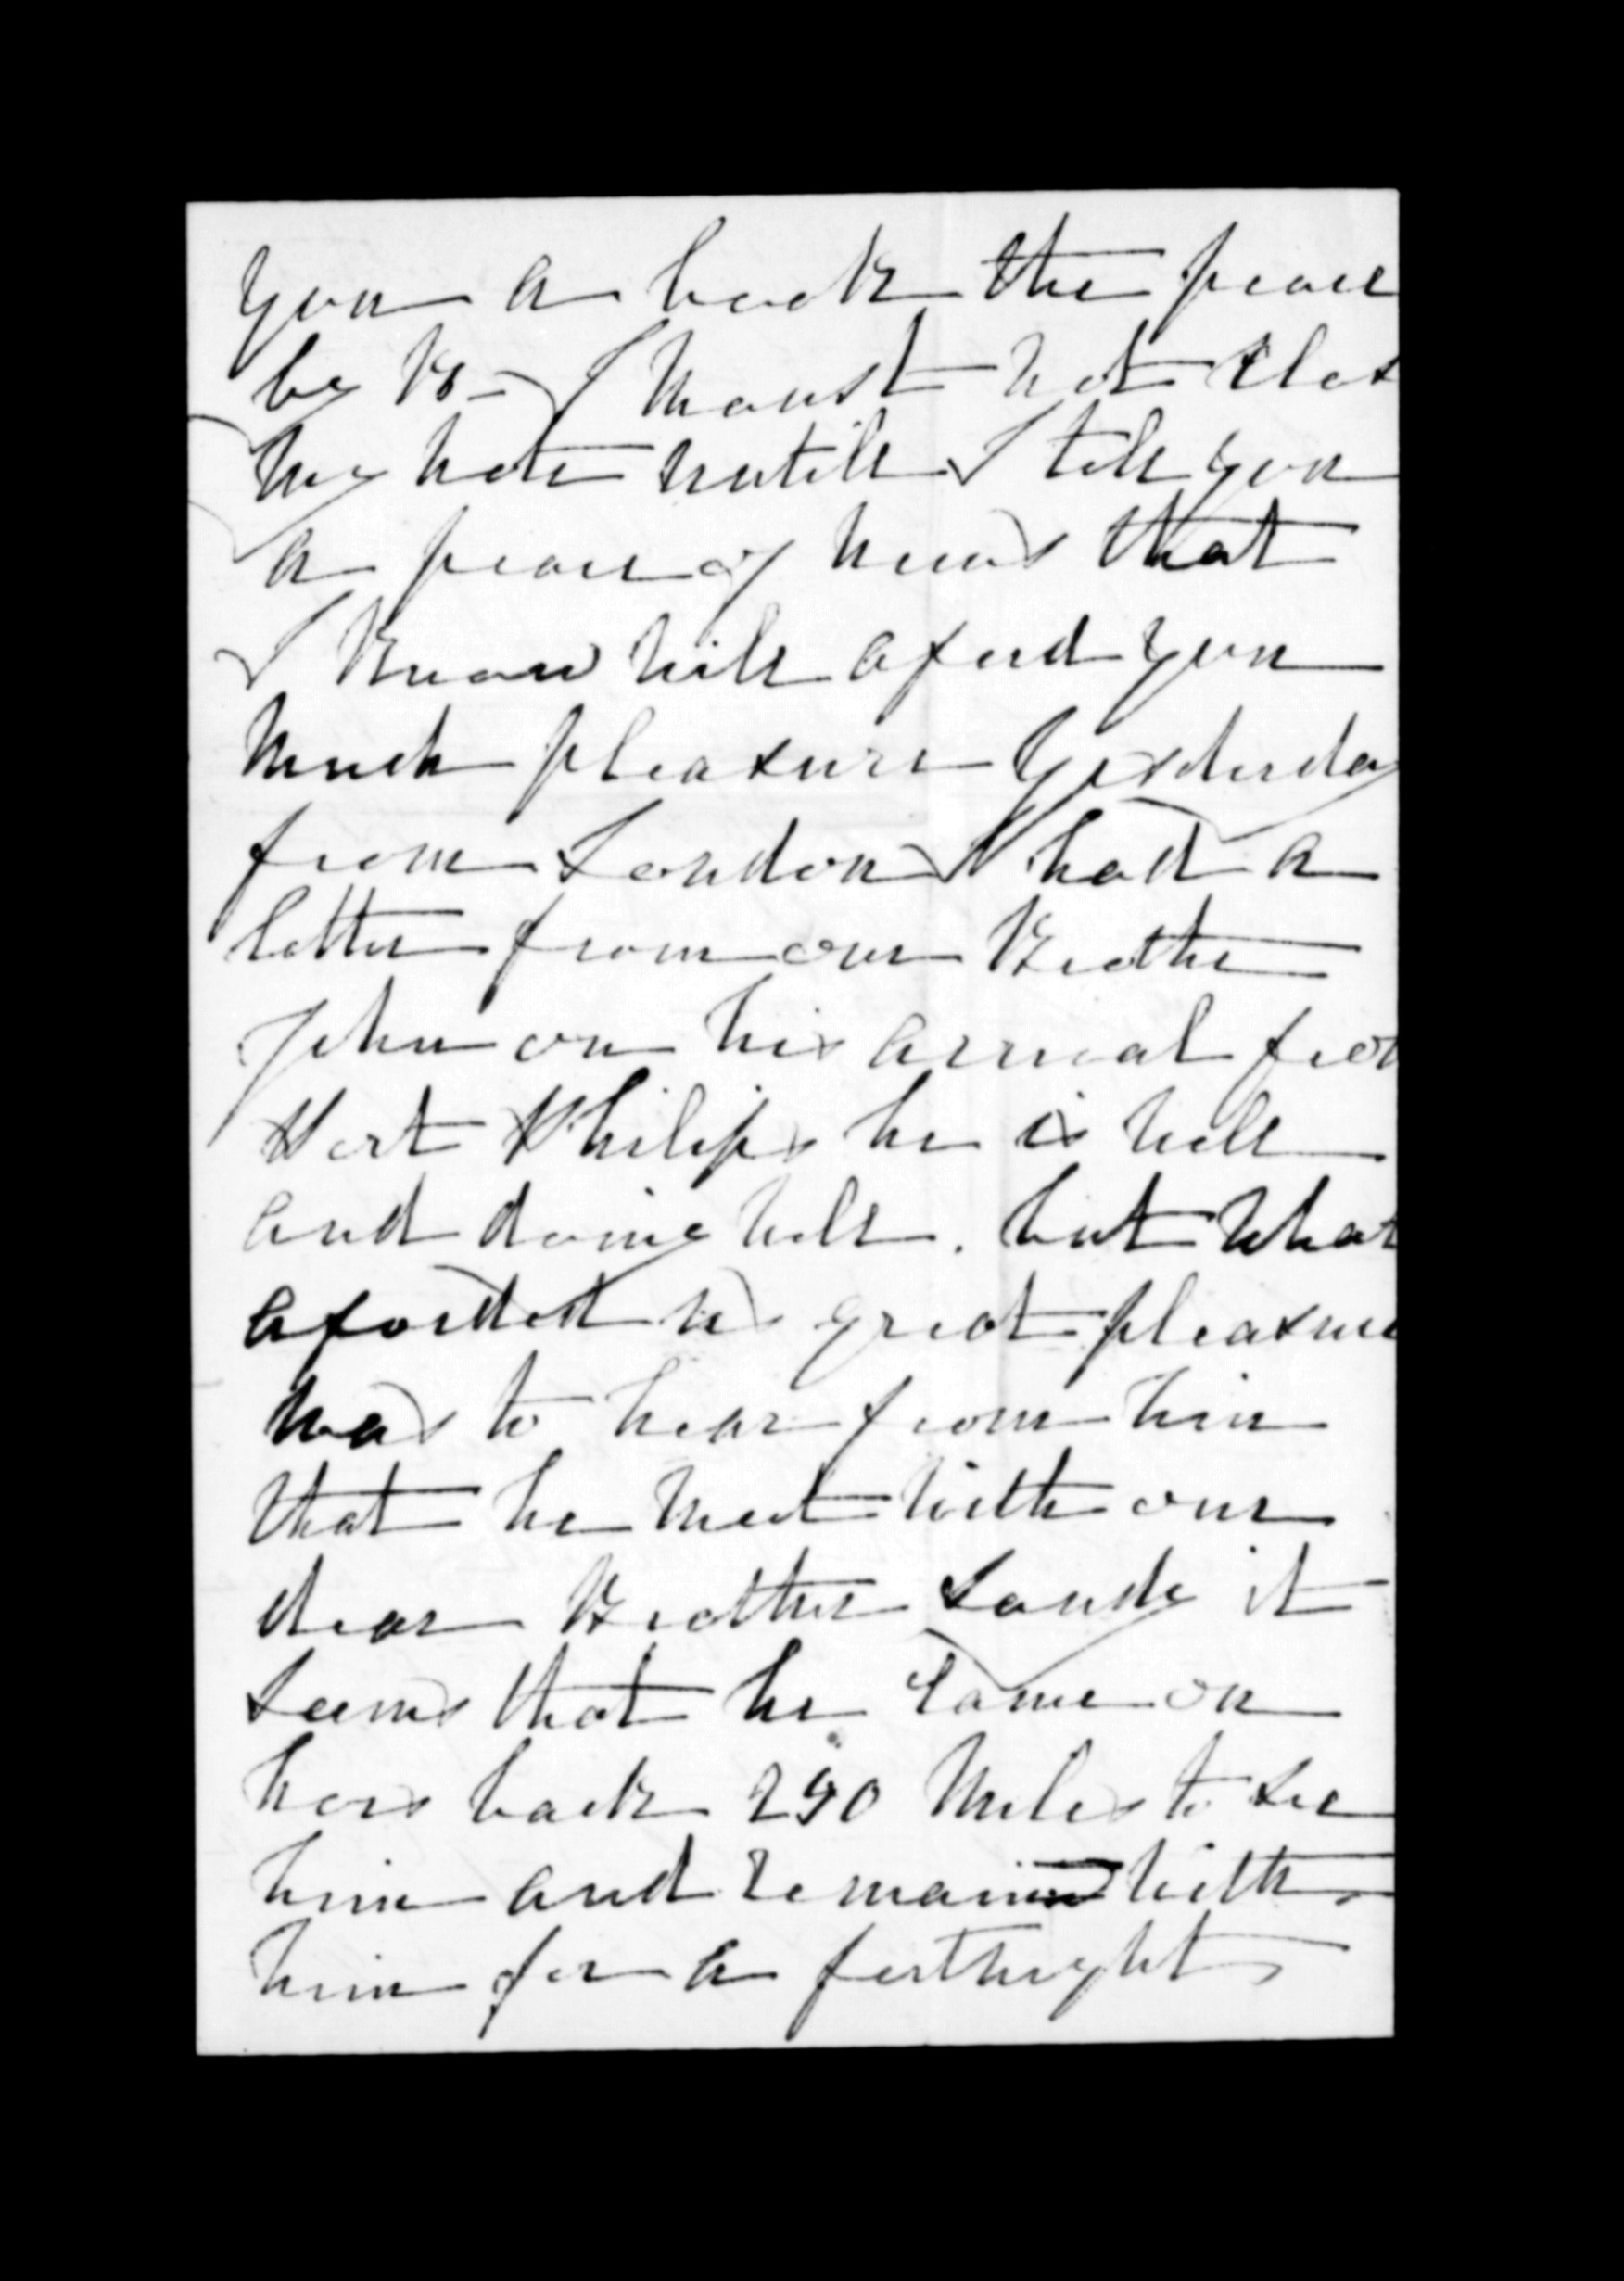 you a book the peace
by B- I moust not clos
my note untill I tell you
a peace of news that
I know will aford you
much pleasure Yesterday
from London I had a
letter from our Brother
John on his arrival from
Port Philips he is well
and doing well. but what
aforded us great pleasure
was to hear from him
that he meet with our
dear Brother Sandy it
seems that he came on
hors back 290 Miles to see
him and remained with
him for a forthnyht